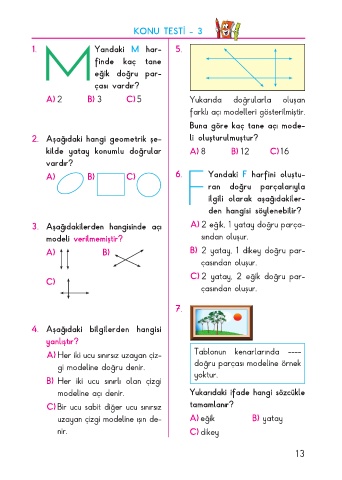 KONU TESTİ - 3
1. Yandaki M har-
finde kaç tane
eğik doğru par-
çası vardır?
A) 2 B) 3 C) 5
2. Aşağıdaki hangi geometrik şe-
kilde yatay konumlu doğrular
vardır?
A) B) C)
3. Aşağıdakilerden hangisinde açı
modeli verilmemiştir?
A) B)
C)
4. Aşağıdaki bilgilerden hangisi
yanlıştır?
A) Her iki ucu sınırsız uzayan çiz-
gi modeline doğru denir.
B) Her iki ucu sınırlı olan çizgi
modeline açı denir.
C) Bir ucu sabit diğer ucu sınırsız
uzayan çizgi modeline ışın de-
nir.
5.
Yukarıda doğrularla oluşan
farklı açı modelleri gösterilmiştir.
Buna göre kaç tane açı mode-
li oluşturulmuştur?
A) 8 B) 12 C) 16
6. Yandaki F harfini oluştu-
ran doğru parçalarıyla
ilgili olarak aşağıdakiler-
den hangisi söylenebilir?
A) 2 eğik, 1 yatay doğru parça-
sından oluşur.
B) 2 yatay, 1 dikey doğru par-
çasından oluşur.
C) 2 yatay, 2 eğik doğru par-
çasından oluşur.
7.
Tablonun kenarlarında ----
doğru parçası modeline örnek
yoktur.
Yukarıdaki ifade hangi sözcükle
tamamlanır?
A) eğik B) yatay
C) dikey
13